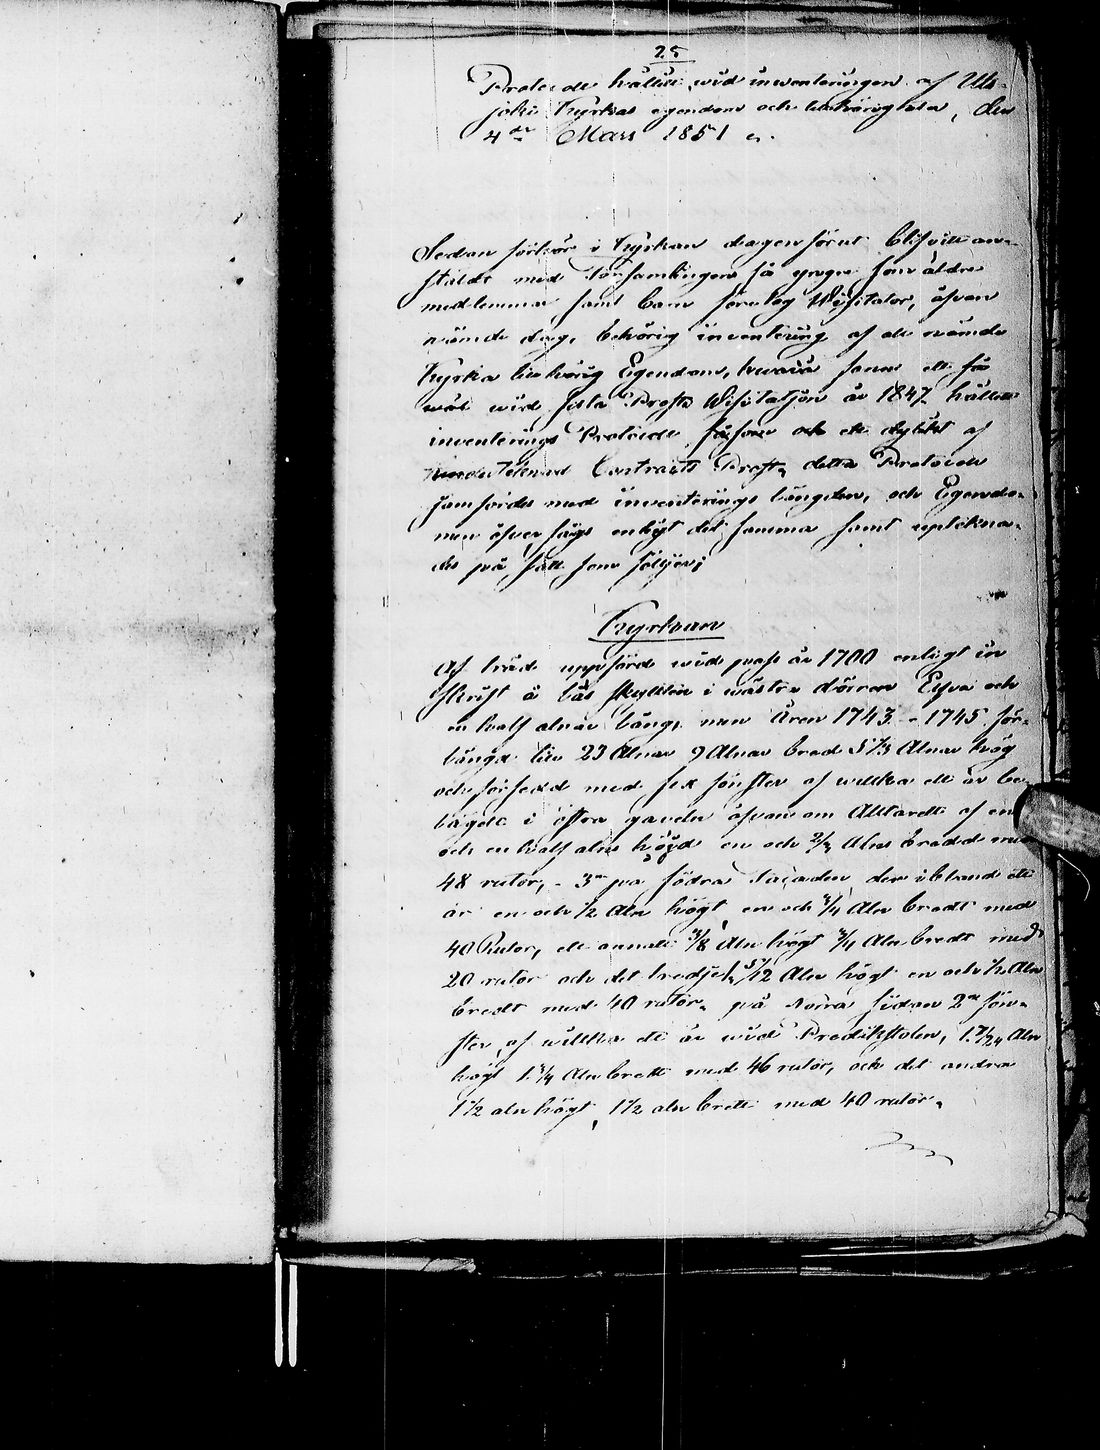 25
Protocoll hållit wid inwenteringen af Uts-
joki Kyrkas egendom och tillhörigheter, den
4de Mars 1851 
Sedan förhör i Kyrkan dagen förut blifvit an-
stäldt med Församlingens så yngre som äldre
medlemmar samt barn företog Wisitator, äfven
nämde dag, behörig inventering af all nämde
Kyrka tillhörig Egendom, hwarvid såwäl ett
wid sista Prosts Wisitation år 1847 hållit
inventerings Protocoll, som och ett dylikt af
undertecknad Contracts Prost, detta Protocoll
jämfördes med inventerings längden, och Egendo-
men öfversågs enligt det samma samt upteckna-
des på sätt som följer;
Kyrkan
Af träd uppförd wid pass år 1700 enligt in
skrift å lås skylten i wästra dörren Elfva och
en half alnar lång, men Åren 1743 - 1745 för-
längd till 23 Alnar 9 Alnar bred 5 1/3 Alnar hög
och försedd med sex fönster af willka ett är be
läget i östra gaveln ofvan om Altaret af en
och en half alns höjd en och 2/3 Alns bredd med
48 rutor, - 3ne på södra facaden, der ibland ett
är en och 1/2 Aln högt, en och 3/4 Aln bredt med
40 Rutor, ett annat 3/8 Aln högt 3/4 Aln bredt med
20 rutor och det tredje 1 5/12 Aln högt en och 1/2 Aln
bredt med 40 rutor. på Norra sidan 2ne fön-
ster, af willka ett är wid Predikstolen, 1 7/24 Aln
högt 1 3/4 Aln brett med 46 rutor, och det andra
1 1/2 aln högt, 1 1/2 aln brett med 40 rutor.